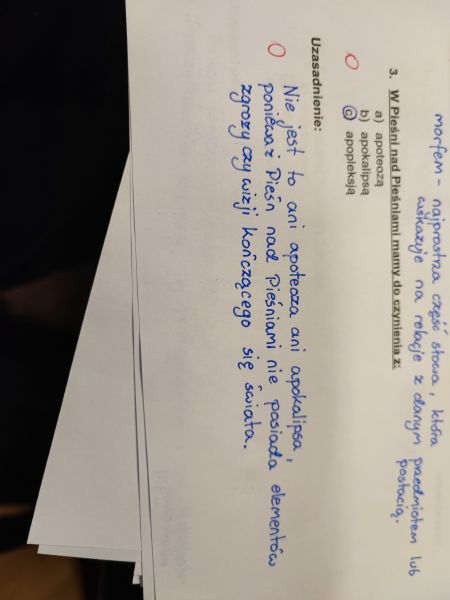 morfem - najprostrza część słowa, która
wskazuje na relację z danym przedmiotem lub
postacią.
3. W Pieśni nad Pieśniami mamy do czynienia z:
a) apoteozą
b) apokalipsą
c) apopleksją
0
Uzasadnienie:
0
Nie jest to ani apoteoza ani apokalipsa,
ponieważ Pieśn nad Pieśniami nie posiada elementów
zgrozy czy wizji kończącego się świata.